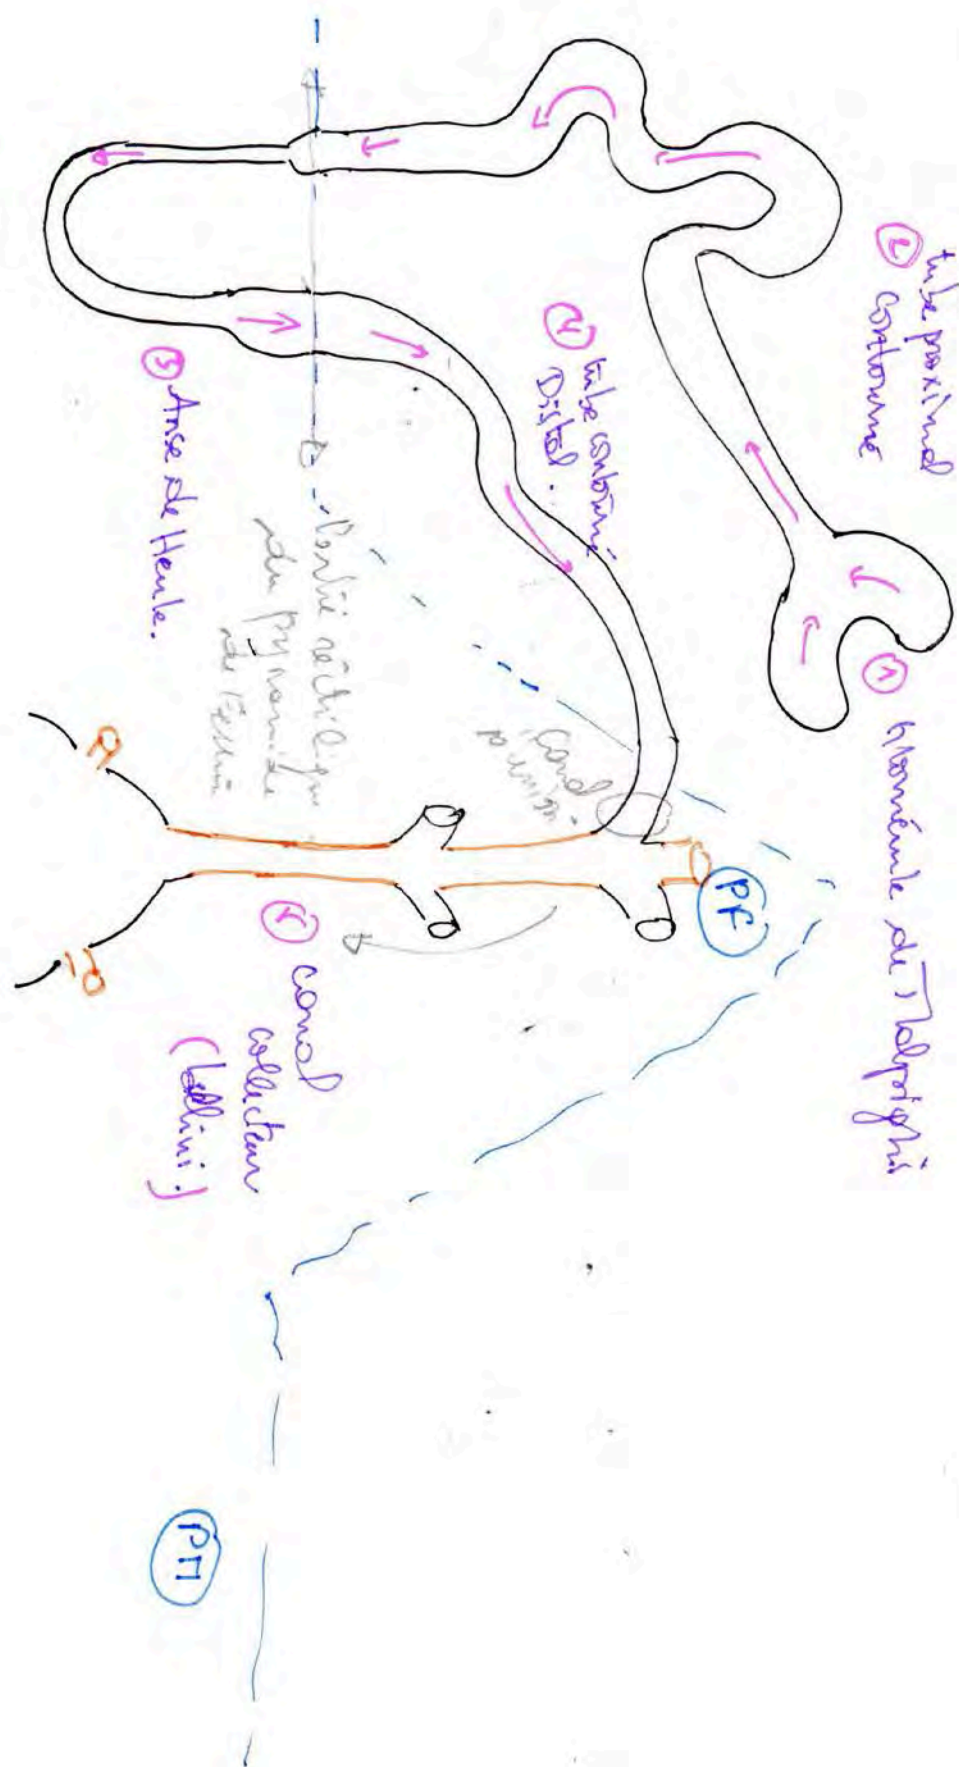 ① Glomérule de Malpighi
② tube proximal
contourné
③ Anse de Henle.
④ tube contourné
Distal.
⑤ canal
collecteur
(Bellini.)
canal
d'union
Partie rectiligne
du pyramide
de
PF
PM